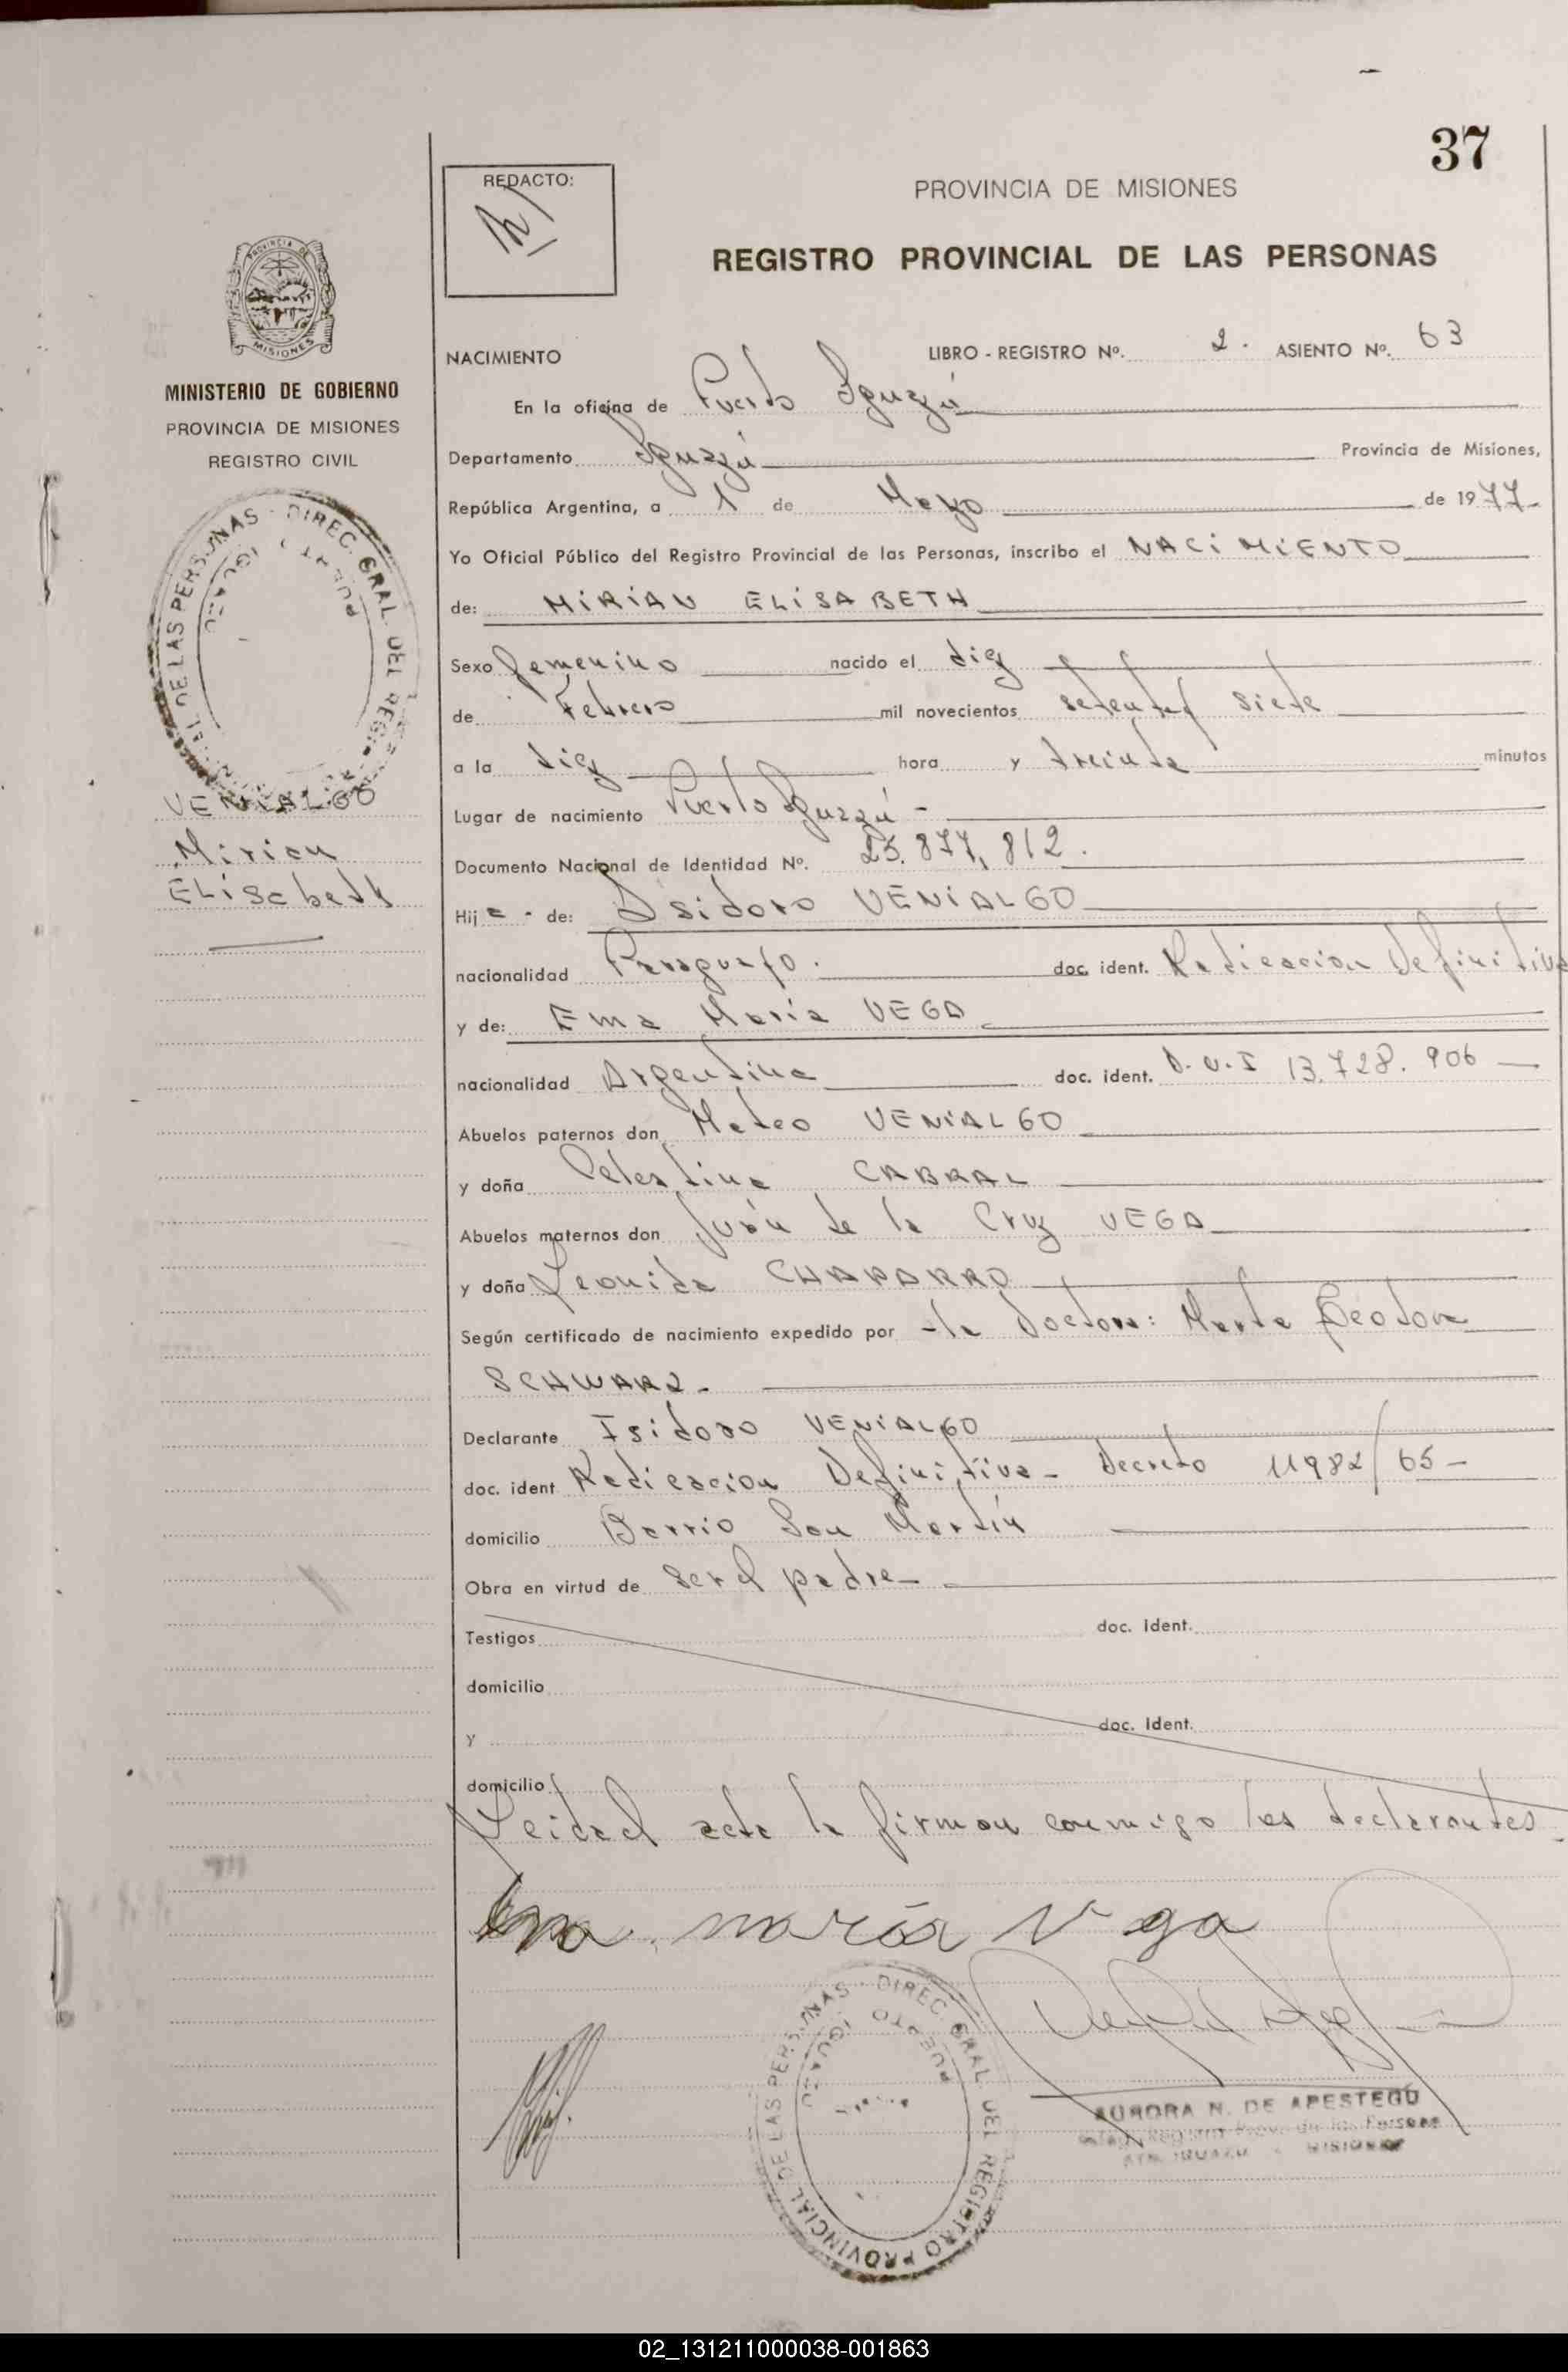 37
REDACTO:
PROVINCIA DE MISIONES
REGISTRO PROVINCIAL DE LAS PERSONAS
PROVINCIA DE
MISIONES
MINISTERIO DE GOBIERNO
PROVINCIA DE MISIONES
REGISTRO CIVIL
DIREC. GRAL. DEL REGI DE LAS PERSONAS
VENIALGO
Mirian
ELisabeth
NACIMIENTO LIBRO - REGISTRO Nº. 2. ASIENTO Nº. 63
En la oficina de Puerto Iguazú
Departamento Iguazú Provincia de Misiones,
República Argentina, a 1 de Mayo de 1977
Yo Oficial Público del Registro Provincial de las Personas, inscribo el NACIMIENTO
de: MIRIAN ELISABETH
Sexo femenino nacido el diez
de Febrero mil novecientos setenta y siete
a la diez hora y treinta minutos
Lugar de nacimiento Puerto Iguazú -
Documento Nacional de Identidad Nº. 25.877.812.
Hija - de: Isidoro VENIALGO
nacionalidad Paraguayo. doc. ident. Radicacion Definitiva
y de: Ema Maria VEGA
nacionalidad Argentina doc. ident. D.N.I 13.728.906
Abuelos paternos don Mateo VENIALGO
y doña Celestina CABRAL
Abuelos maternos don Juán de la Cruz VEGA
y doña Leonida CHAPARRO
Según certificado de nacimiento expedido por -la Doctora: Marta Teodora
SCHWARZ.
Declarante Isidoro VENIALGO
doc. ident Radicacion Definitiva - Decreto 11982/65-
domicilio Barrio San Martín
Obra en virtud de ser el padre-
Testigos doc. ident.
domicilio
y doc. Ident.
domicilio
Leida el acta la firman conmigo los declarantes.
Ema maría Vega
DIREC. GRAL. DEL REGISTRO PROVINCIAL DE LAS PERSONAS
PUERTO IGUAZU
AURORA N. DE APESTEGÜ
MISIONES
02_131211000038-001863